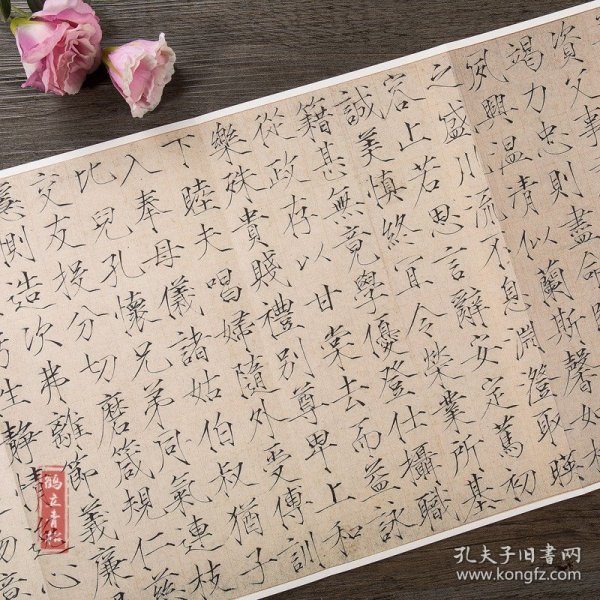 資父事
竭力忠則盡命
夙興溫凊似蘭斯馨如松
之盛川流不息淵澄取映
容止若思言辭安定篤初
誠美慎終宜令榮業所基
籍甚無竟學優登仕攝職
從政存以甘棠去而益詠
樂殊貴賤禮別尊卑上和
下睦夫唱婦隨外受傅訓
入奉母儀諸姑伯叔猶子
比兒孔懷兄弟同氣連枝
交友投分切磨箴規仁慈
隱惻造次弗離節義廉退
虧性靜情逸心
物意
鶴立青松
孔夫子旧书网
www.kongfz.com